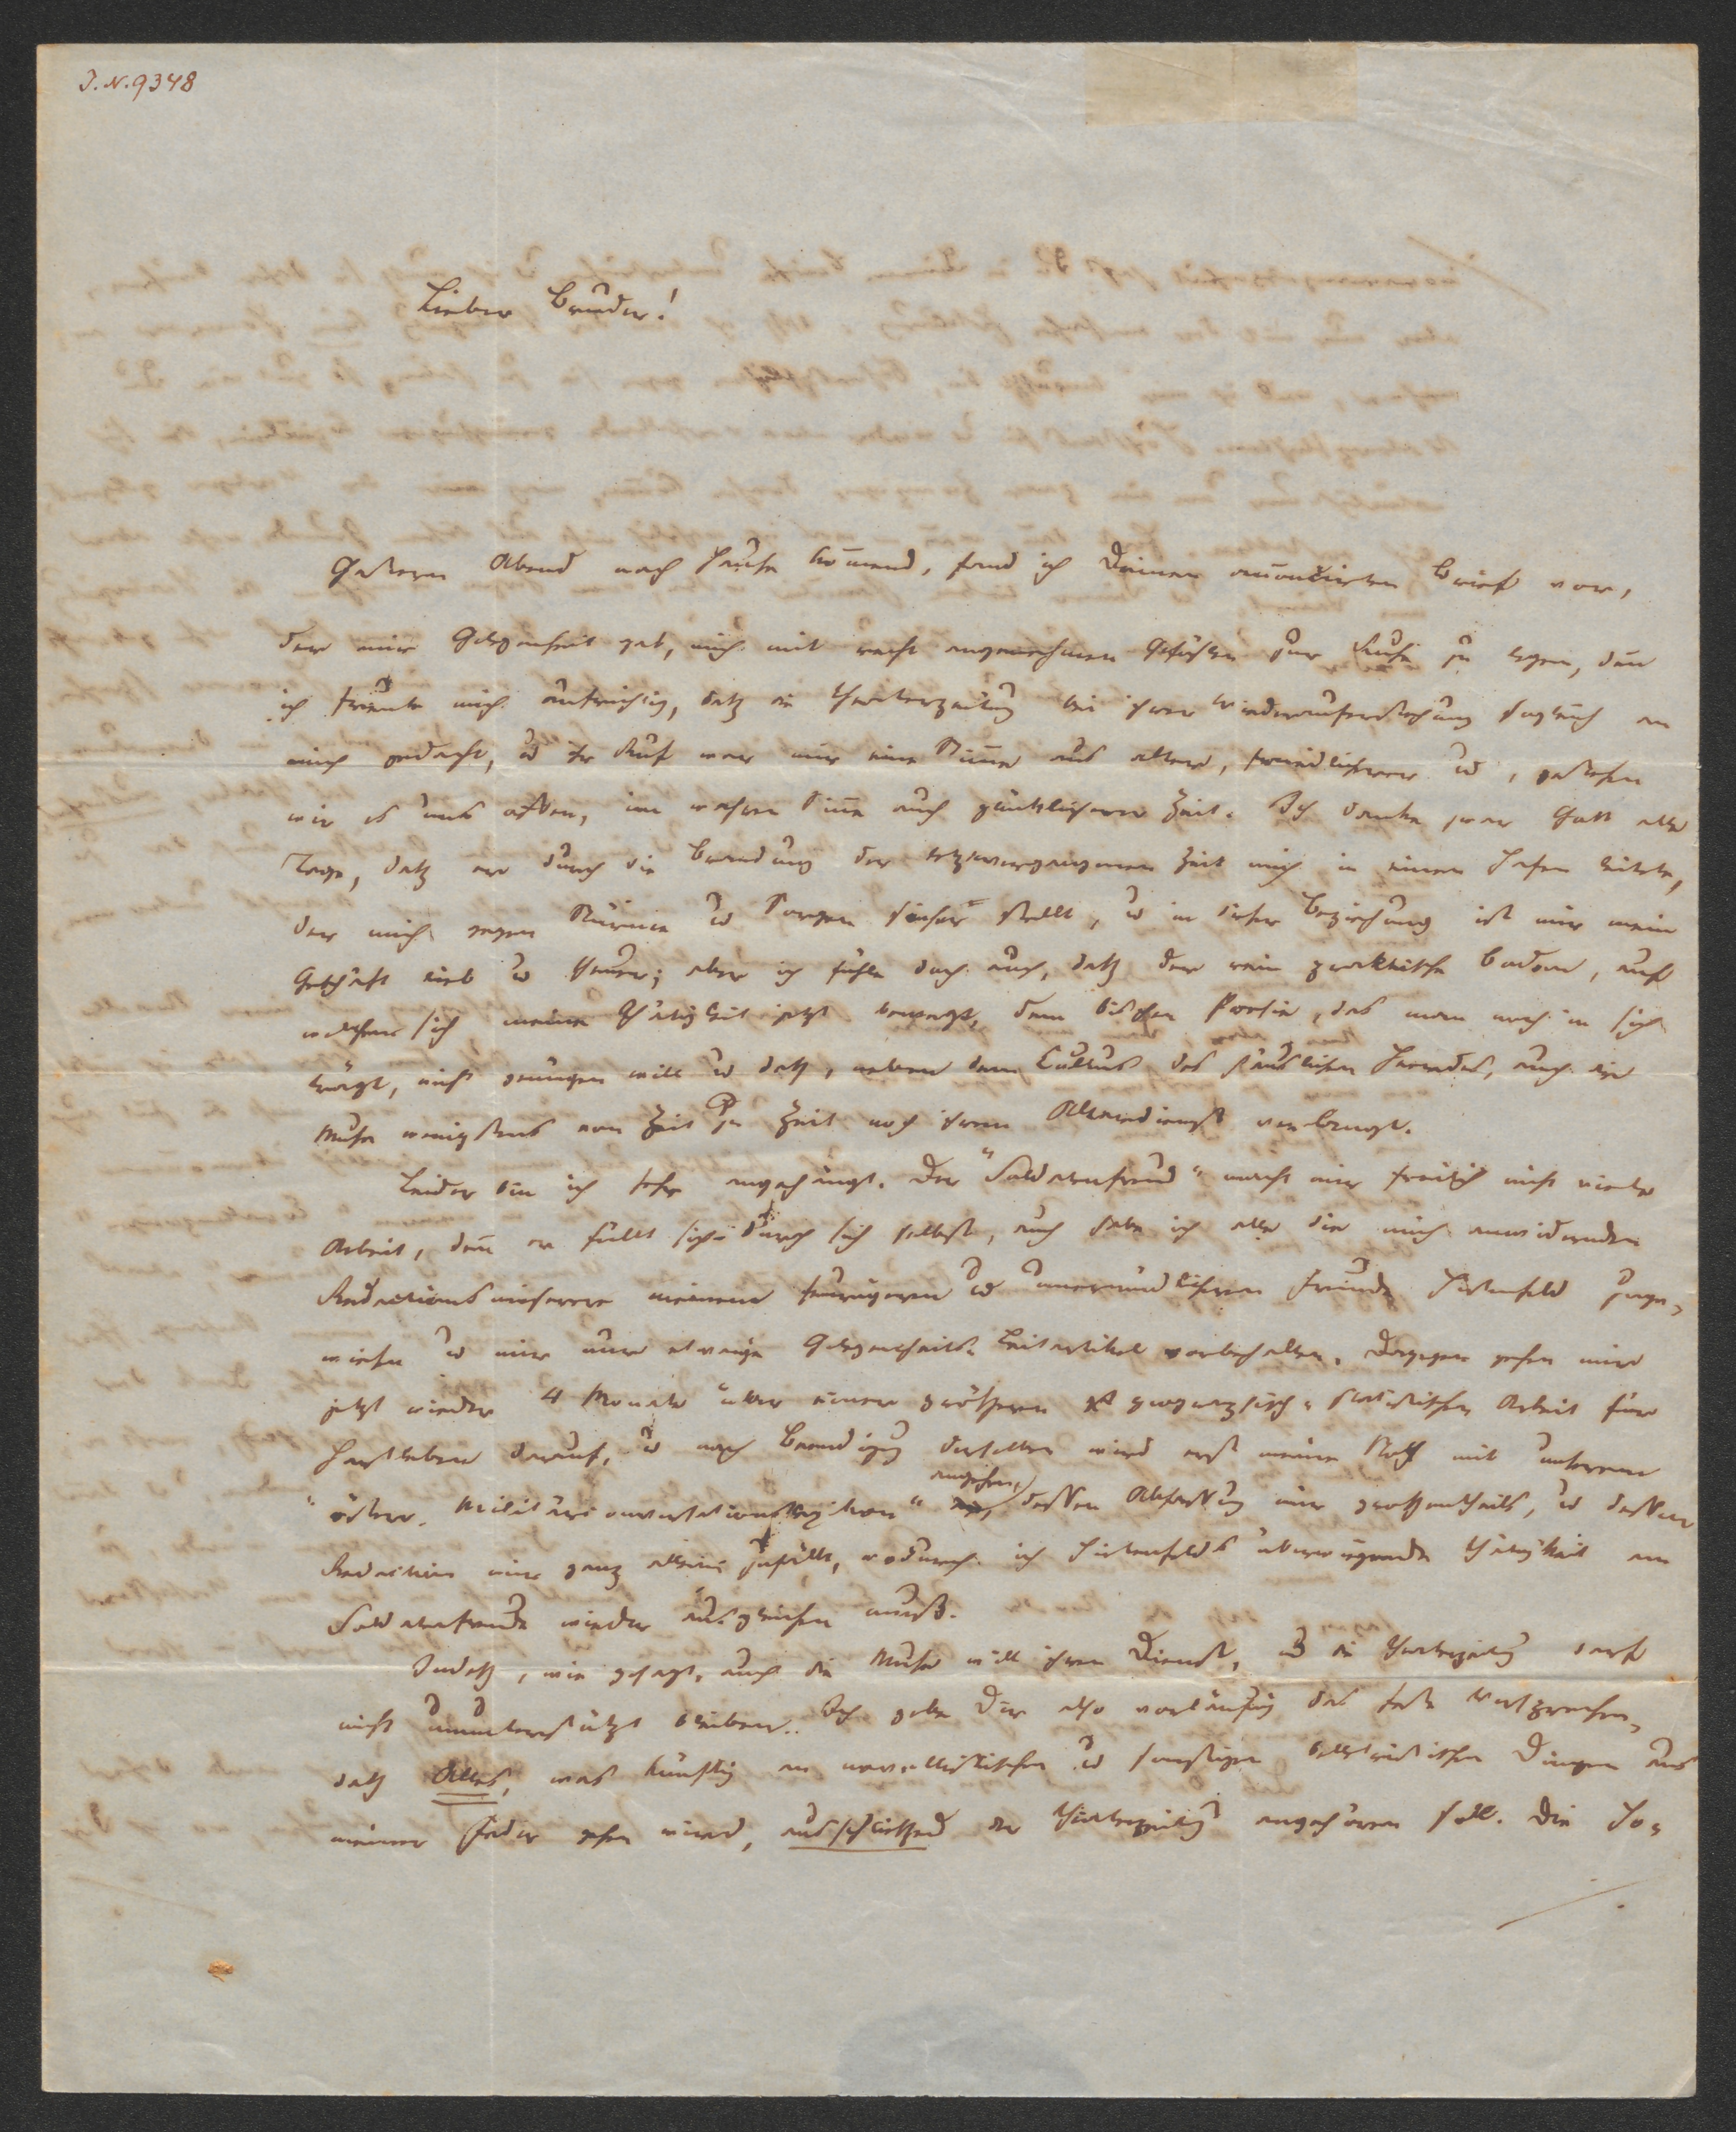 J.N.9348
Lieber Bruder!
Gestern Abend nach Hause kom̄end, fand ich Deinen an̄oncirten Brief vor,
der mir Gelegenheit gab, mich mit recht angenehmen Gefühlen zur Ruhe zu legen, den̄
ich freute mich aufrichtig, daß die Theaterzeitung bei ihrer Wiederauferstehung sogleich an
mich gedacht, u ihr Ruf war mir eine Stim̄e aus alter, freundlicherer u, gestehen
wir es uns offen, im wahren Sin̄e auch glücklicherer Zeit. Ich danke zwar Gott alle
Tage, daß er durch die Brandung der letztvergangenen Zeit mich in einen Hafen leitete,
der mich gegen Stürme u Sorgen sicher stellt, u in dieser Beziehung ist mir mein
Geschäft lieb u theuer; aber ich fühle doch auch, daß der rein praktische Boden, auf
welchem sich meine Thätigkeit jetzt bewegt, dem bischen Poesie, das man noch in sich
trägt, nicht genügen will u daß, neben dem Cultus des häuslichen Herdes, auch die
Muse wenigstens von Zeit zu Zeit noch ihren Altardienst verlangt.
Leider bin ich sehr angehängt. Der "Soldatenfreund" macht mir freilich nicht viele
Arbeit, den̄ er füllt sich durch sich selbst, auch habe ich alle die mich anwidernden
Redactionsmiseren meinem feurigeren u unermüdlichen Freunde Hirtenfeld zuge-
wiesen u mir nur etwaige Gelegenheits-Leitartikel vorbehalten. Dagegen gehen mir
jetzt wieder 4 Monate über einer größeren geographisch-statistischen Arbeit für
Hartleben darauf, u nach Beendigung derselben wird erst meine Noth mit unserem
"österr. Militärconversationslexikon" angehen, dessen Abfassung mir großentheils, u dessen
Redaction mir ganz allein zufällt, wodurch ich Hirtenfelds überwiegende Thätigkeit am
Soldatenfreunde wieder ausgleichen muß.
Indeß, wie gesagt, auch die Muse will ihren Dienst, u die Theaterzeitung darf
nicht ununterstützt bleiben. Ich gebe Dir also vorläufig das feste Versprechen,
daß Alles, was künftig an novellistischen u sonstigen belletristischen Dingen aus
meiner Feder gehen wird, ausschließend der Theaterzeitung angehören soll. Die Ho-